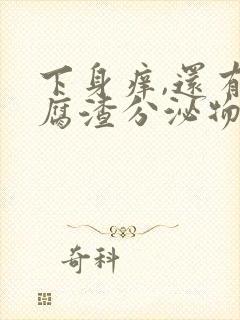 下身痒,還有
腐渣分泌物
奇科